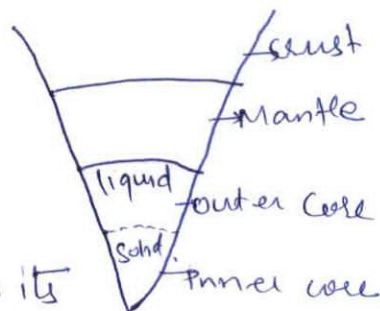 crust
Mantle
liquid
outer core
solid
Inner core
its